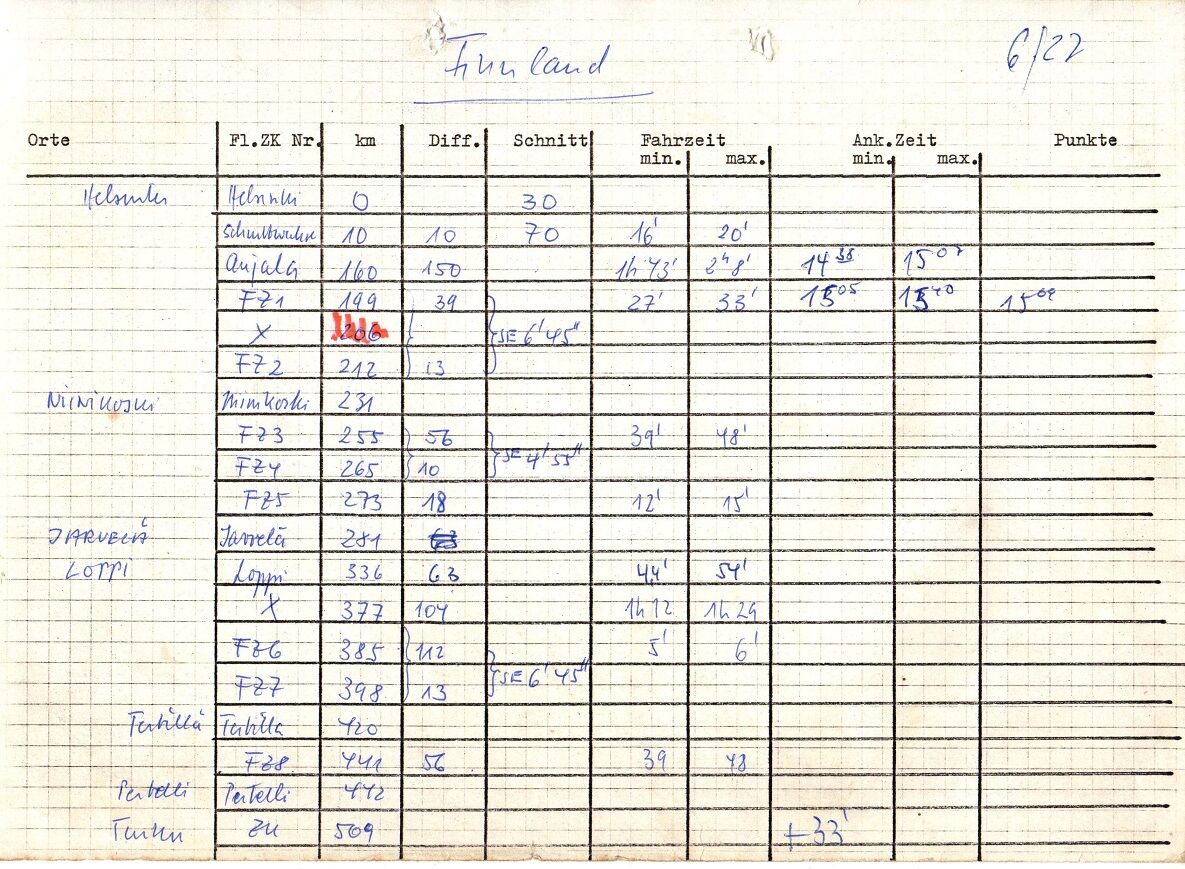 Finnland
6/22
Orte Fl.ZK Nr. km Diff. Schnitt Fahrzeit Ank.Zeit Punkte
min. max. min. max.
Helsinki Helsinki 0 30
10 10 70 16' 20'
Anjala 160 150 1h 43' 2h 8' 14 38 15 07
FZ1 199 39 27' 33' 15 05 15 40 15 09
X 206 SE 6' 45"
FZ2 212 13
NIINIKOSKI Niinikoski 231
FZ3 255 56 39' 48'
FZ4 265 10 SE 4' 55"
FZ5 273 18 12' 15'
JARVELÄ Jarvelä 281 63
LOPPI Loppi 336 63 44' 54'
X 377 104 1h 12 1h 29
FZ6 385 112 5' 6'
FZ7 398 13 SE 6' 45"
Tertillä Tertilla 420
FZ8 441 56 39 48
Pertelli Pertelli 442
Turku ZK 509 +33'